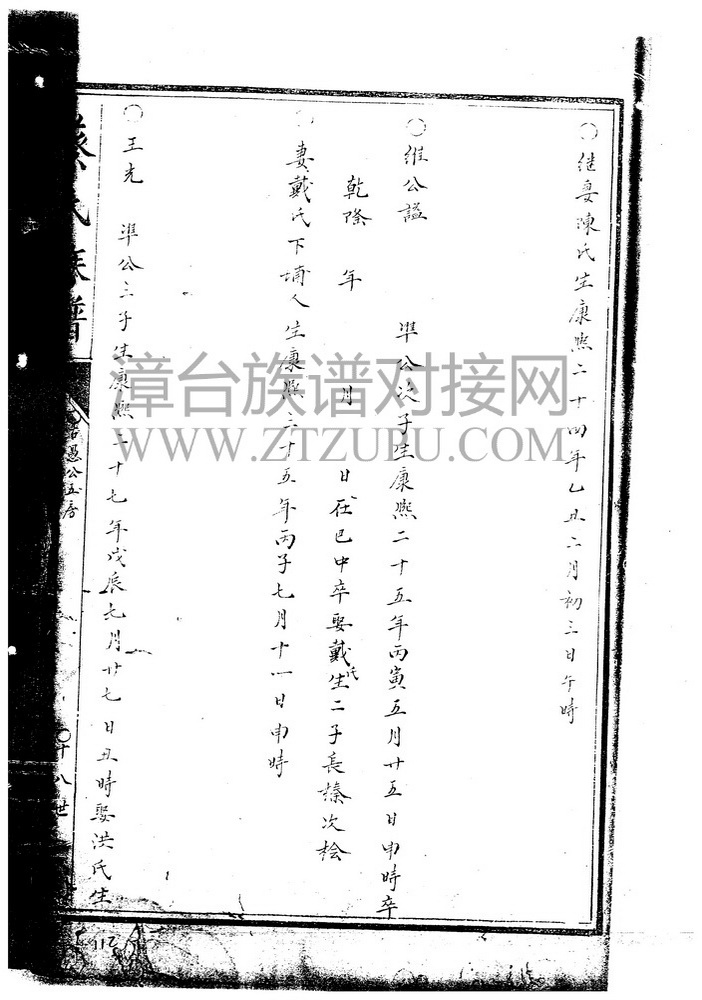 〇继妻陳氏生康熙二十四年乙丑二月初三日午時
〇維公謚 準公次子生康熙二十五年丙寅五月廿五日申時卒
乾隆 年 月 日在巴中卒娶戴氏生二子長榛次桧
〇妻戴氏下埔人生康熙三十五年丙子七月十一日申時
〇王光 準公三子生康熙二十七年戊辰七月廿七日丑時娶洪氏生
氏族譜
愚公五房
〇十八世
112
漳台族谱对接网
WWW.ZTZUPU.COM